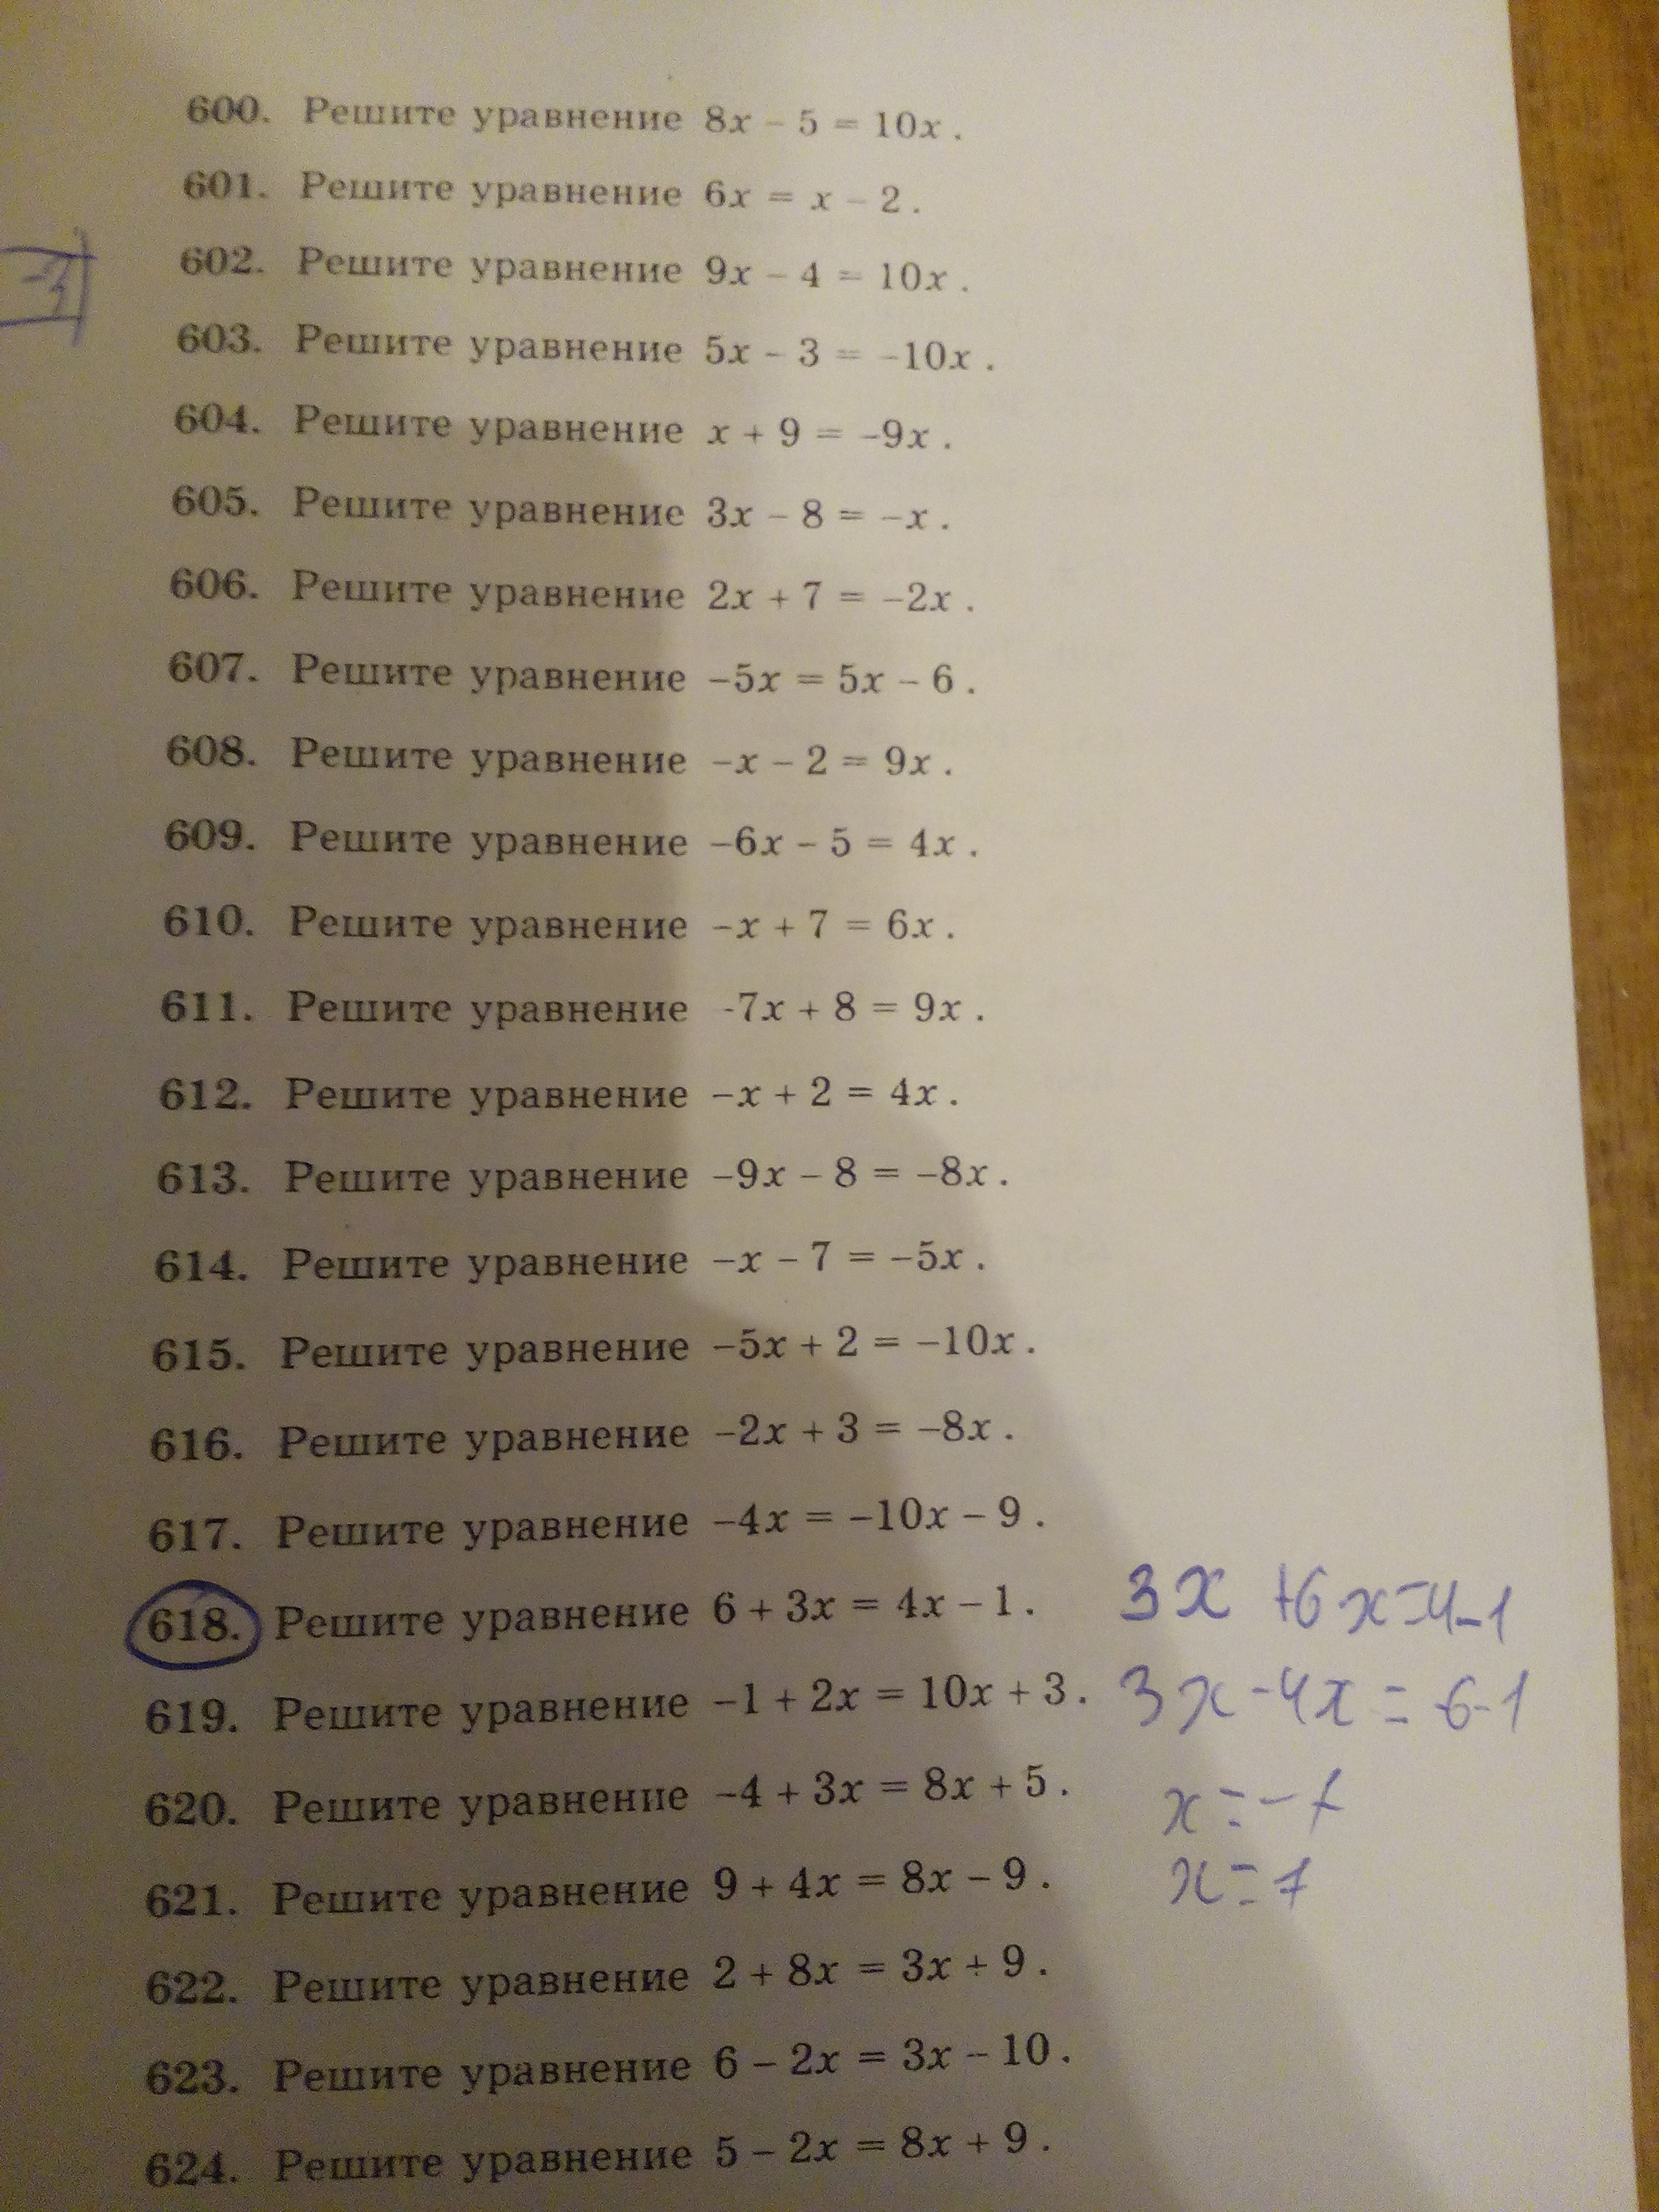 600. Решите уравнение 8x – 5 = 10x.
601. Решите уравнение 6x = x – 2.
602. Решите уравнение 9x – 4 = 10x.
603. Решите уравнение 5x – 3 = –10x.
604. Решите уравнение x + 9 = –9x.
605. Решите уравнение 3x – 8 = –x.
606. Решите уравнение 2x + 7 = –2x.
607. Решите уравнение –5x = 5x – 6.
608. Решите уравнение –x – 2 = 9x.
609. Решите уравнение –6x – 5 = 4x.
610. Решите уравнение –x + 7 = 6x.
611. Решите уравнение -7x + 8 = 9x.
612. Решите уравнение –x + 2 = 4x.
613. Решите уравнение –9x – 8 = –8x.
614. Решите уравнение –x – 7 = –5x.
615. Решите уравнение –5x + 2 = –10x.
616. Решите уравнение –2x + 3 = –8x.
617. Решите уравнение –4x = –10x – 9.
618. Решите уравнение 6 + 3x = 4x – 1. 3x +6x=4-1
619. Решите уравнение –1 + 2x = 10x + 3. 3x-4x = -6-1
620. Решите уравнение –4 + 3x = 8x + 5. x=-7
621. Решите уравнение 9 + 4x = 8x – 9. x=7
622. Решите уравнение 2 + 8x = 3x + 9.
623. Решите уравнение 6 – 2x = 3x – 10.
624. Решите уравнение 5 – 2x = 8x + 9.